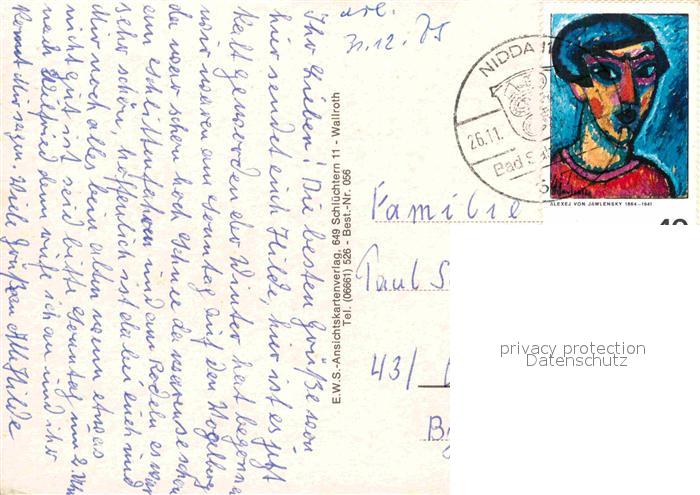 Ihr Lieben! Die besten Grüße von
hier sendet euch Hilde, hier ist es jetzt
kalt geworden der Winter hat begonnen
wir waren am Sonntag auf dem Vogelberg
da war schon hoch Schnee da waren sie schon
am Schlittenfahren und am Rodeln es war
sehr schön, hoffentlich ist da bei euch und
Mir noch alles beim alten wenn etwas
nicht gut ist seid bitte Sonntag um 2 Uhr
nach da rufe ich an und ihr
könnt mir sagen. Viele Grüße Hilde
31.12.75
E.W.S.-Ansichtskartenverlag, 649 Schlüchtern 11 - Wallroth
Tel. (06661) 526 - Best.-Nr. 056
NIDDA 11
26.11.
Bad Sal
ALEXEJ VON JAWLENSKY 1864-1941
40
Familie
Paul S
43/
By
privacy protection
Datenschutz